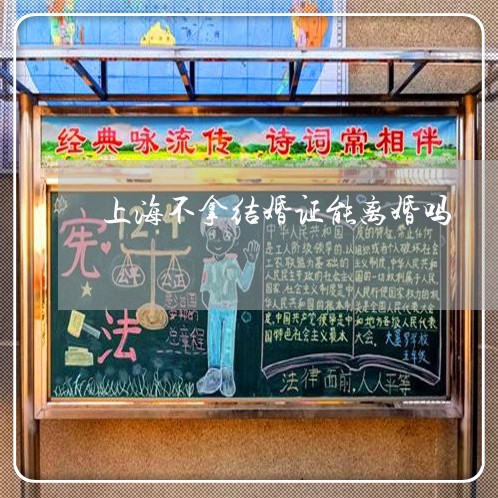 经典咏流传 诗词常相伴
上海不拿结婚证能离婚吗
宪法
12·4
公平 公正
总章程
中华人民共和国
是工人阶级领导的,以
工农联盟为基础的
人民民主专政的社会主义
国家,社会主义制度是中
华人民共和国的根本制
度,中国共产党领导是中
国特色社会主义最本
质的特征,禁止任何
组织或者个人破坏社会
主义制度,中华人民共和
国的一切权利属于人民,
人民行使国家权力的机
关是全国人民代表大会
和地方各级人民代表
大会。
学校
五年级
法律面前,人人平等